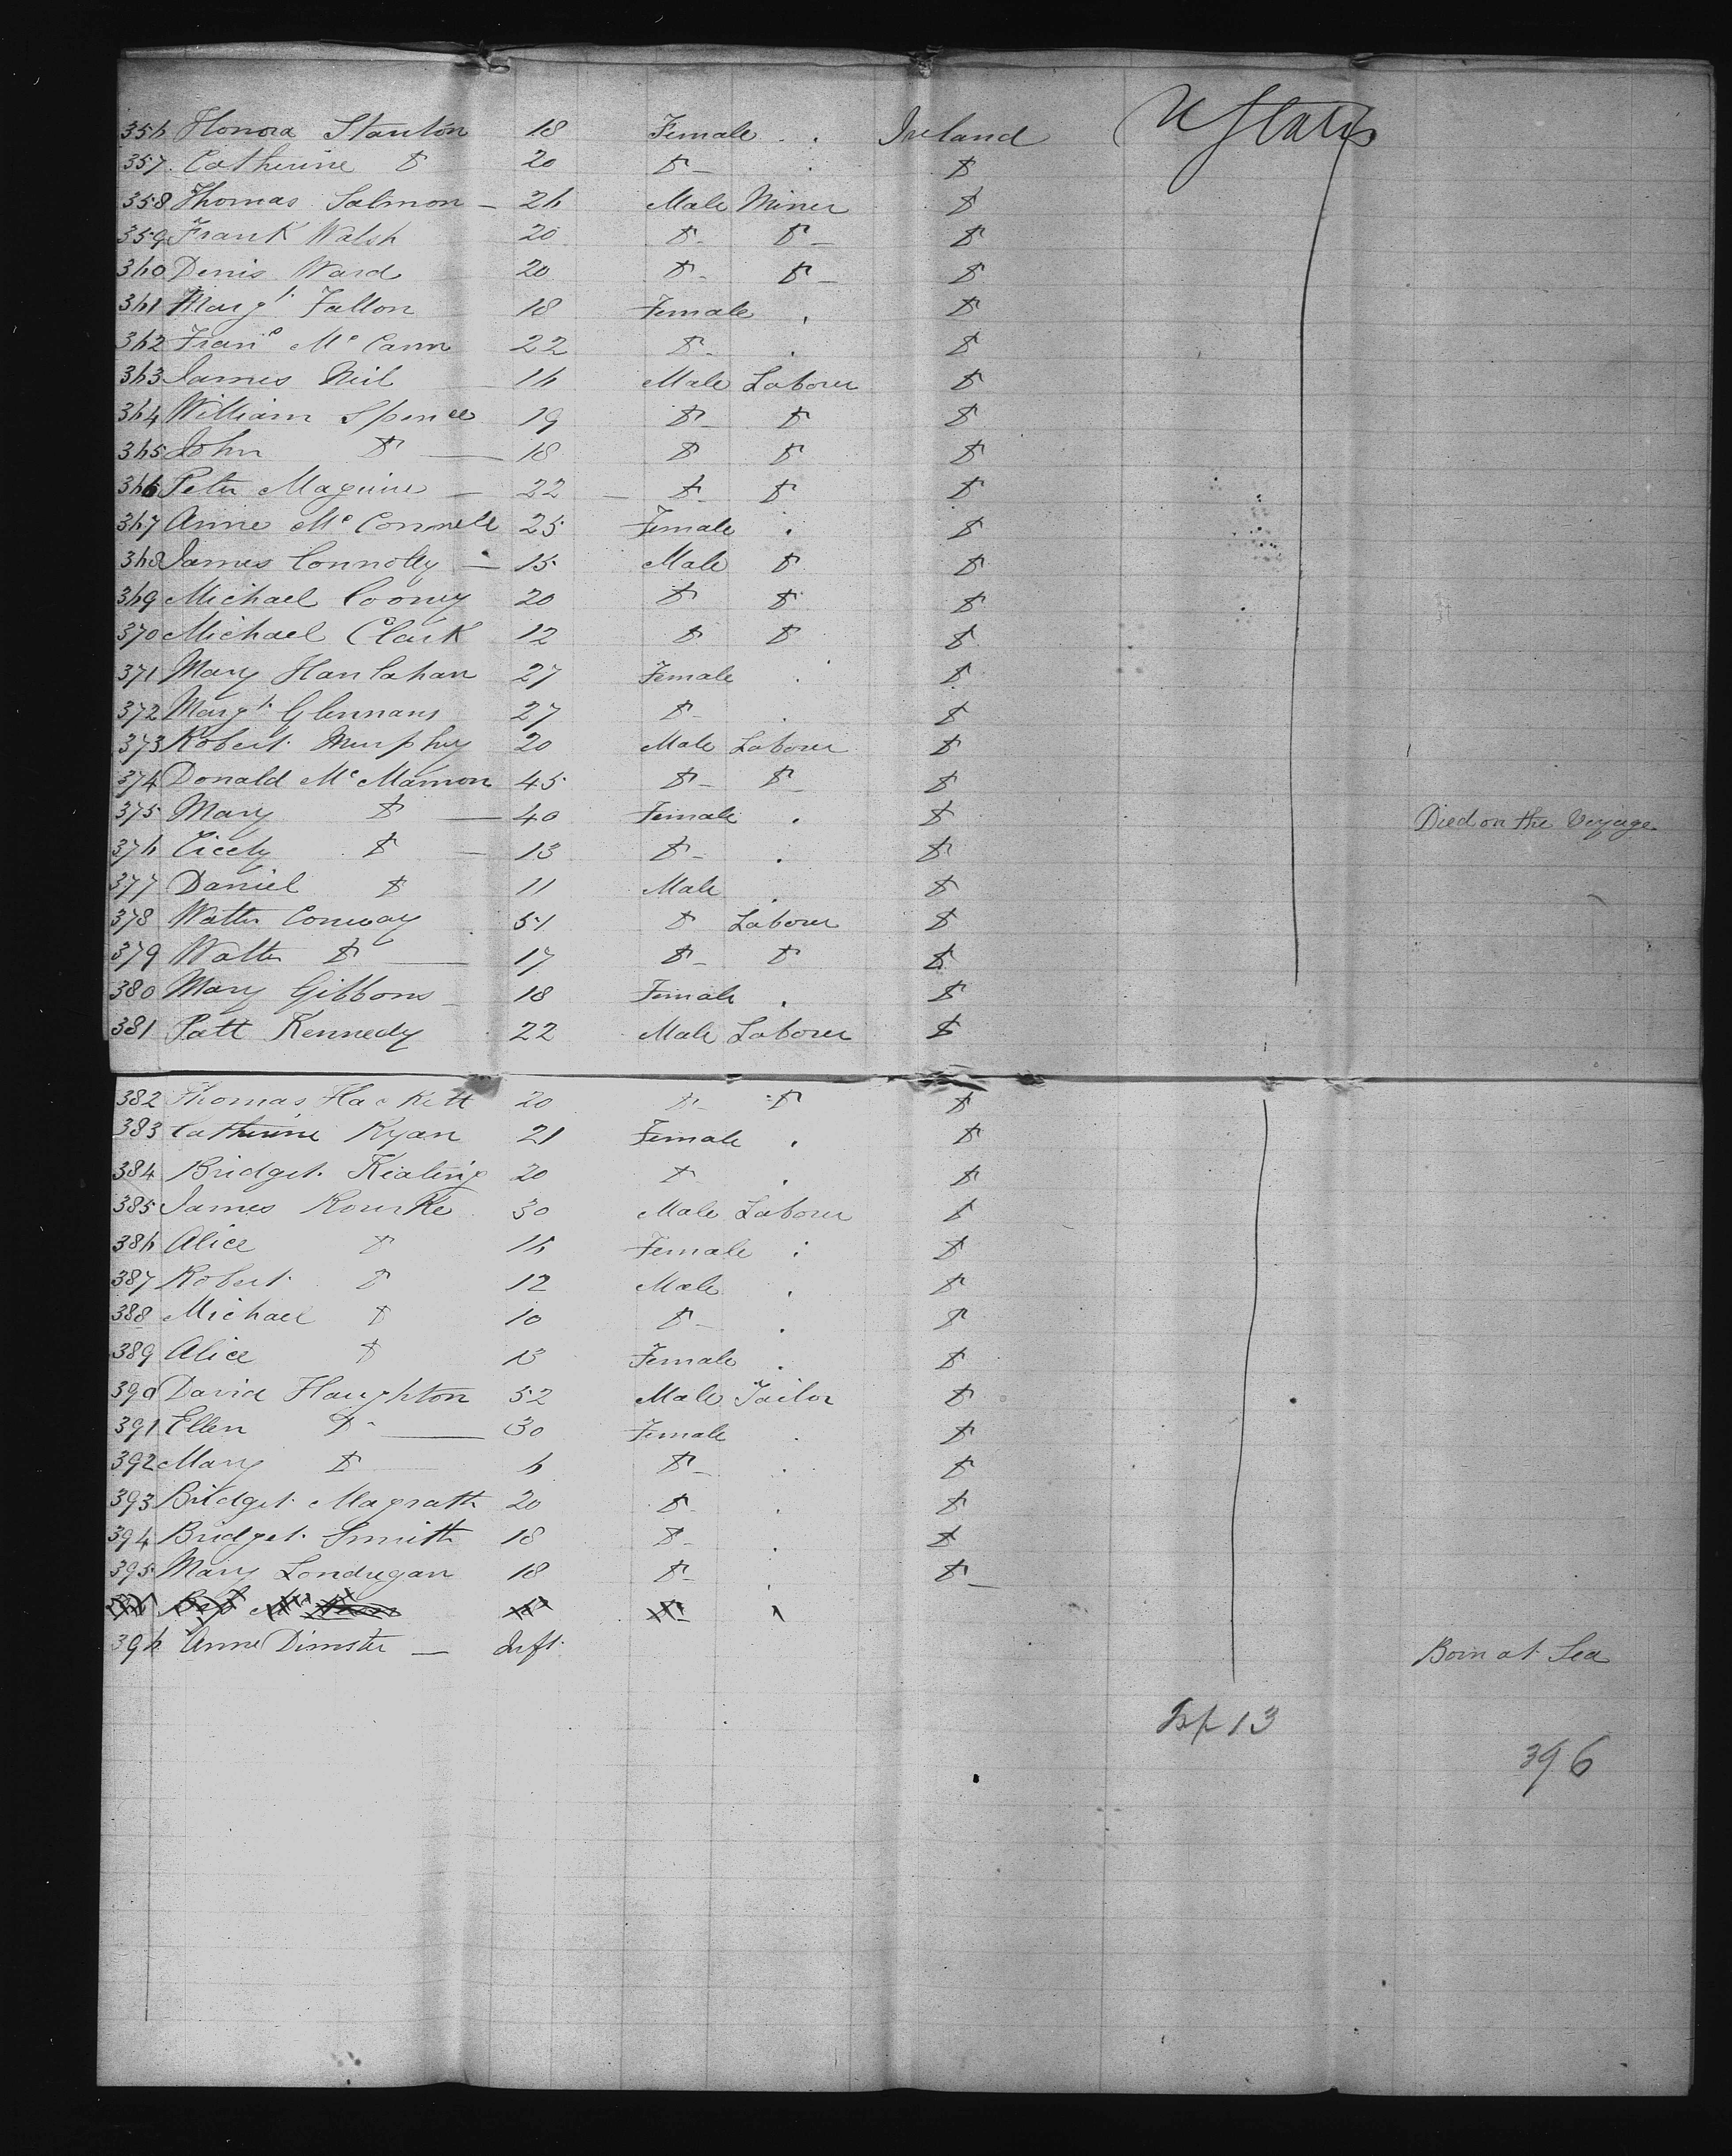 356 Honora Stanton 18 Female . Ireland U States
357 Catherine Do 20 Do . Do
358 Thomas Salmon 26 Male Miner Do
359 Frank Walsh 20 Do Do Do
360 Denis Ward 20 Do Do Do
361 Margt Fallon 18 Female . Do
362 Franc McCann 22 Do . Do
363 James Neil 16 Male Laborer Do
364 William Spence 19 Do Do Do
365 John Do 18 Do Do Do
366 Peter Maguire 22 Do Do Do
367 Anne McConnell 25 Female . Do
368 James Connolly 15 Male Do Do
369 Michael Cooney 20 Do Do Do
370 Michael Clark 12 Do Do Do
371 Mary Hanlahan 27 Female . Do
372 Margt Glennans 27 Do . Do
373 Robert Murphy 20 Male Laborer Do
374 Donald McMamon 45 Do Do Do
375 Mary Do 40 Female . Do Died on the Voyage
376 Cicely Do 13 Do . Do
377 Daniel Do 11 Male . Do
378 Walter Conway 51 Do Laborer Do
379 Walter Do 17 Do Do Do
380 Mary Gibbons 18 Female . Do
381 Patt Kennedy 22 Male Laborer Do
382 Thomas Hackett 20 Do Do Do
383 Catherine Ryan 21 Female . Do
384 Bridget Kealing 20 Do . Do
385 James Rourke 30 Male Laborer Do
386 Alice Do 16 Female . Do
387 Robert Do 12 Male . Do
388 Michael Do 10 Do . Do
389 Alice Do 13 Female . Do
390 David Haughton 52 Male Tailor Do
391 Ellen Do 30 Female . Do
392 Mary Do 6 Do . Do
393 Bridget Magrath 20 Do . Do
394 Bridget Smith 18 Do . Do
395 Mary Londregan 18 Do . Do
396 Anne Dimster Inft Born at Sea
Inf 13
396